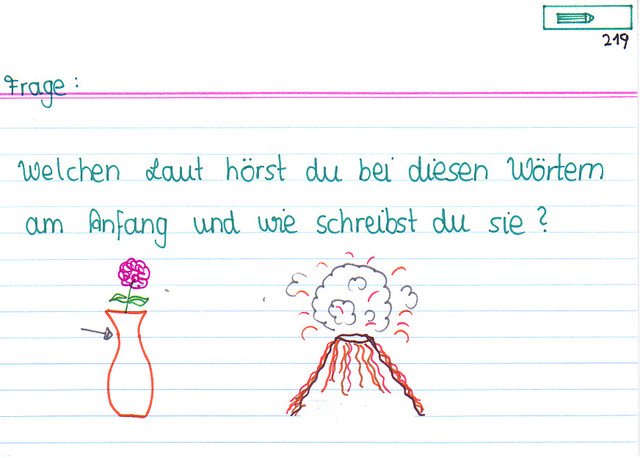 219
Frage:
Welchen Laut hörst du bei diesen Wörtern
am Anfang und wie schreibst du sie?